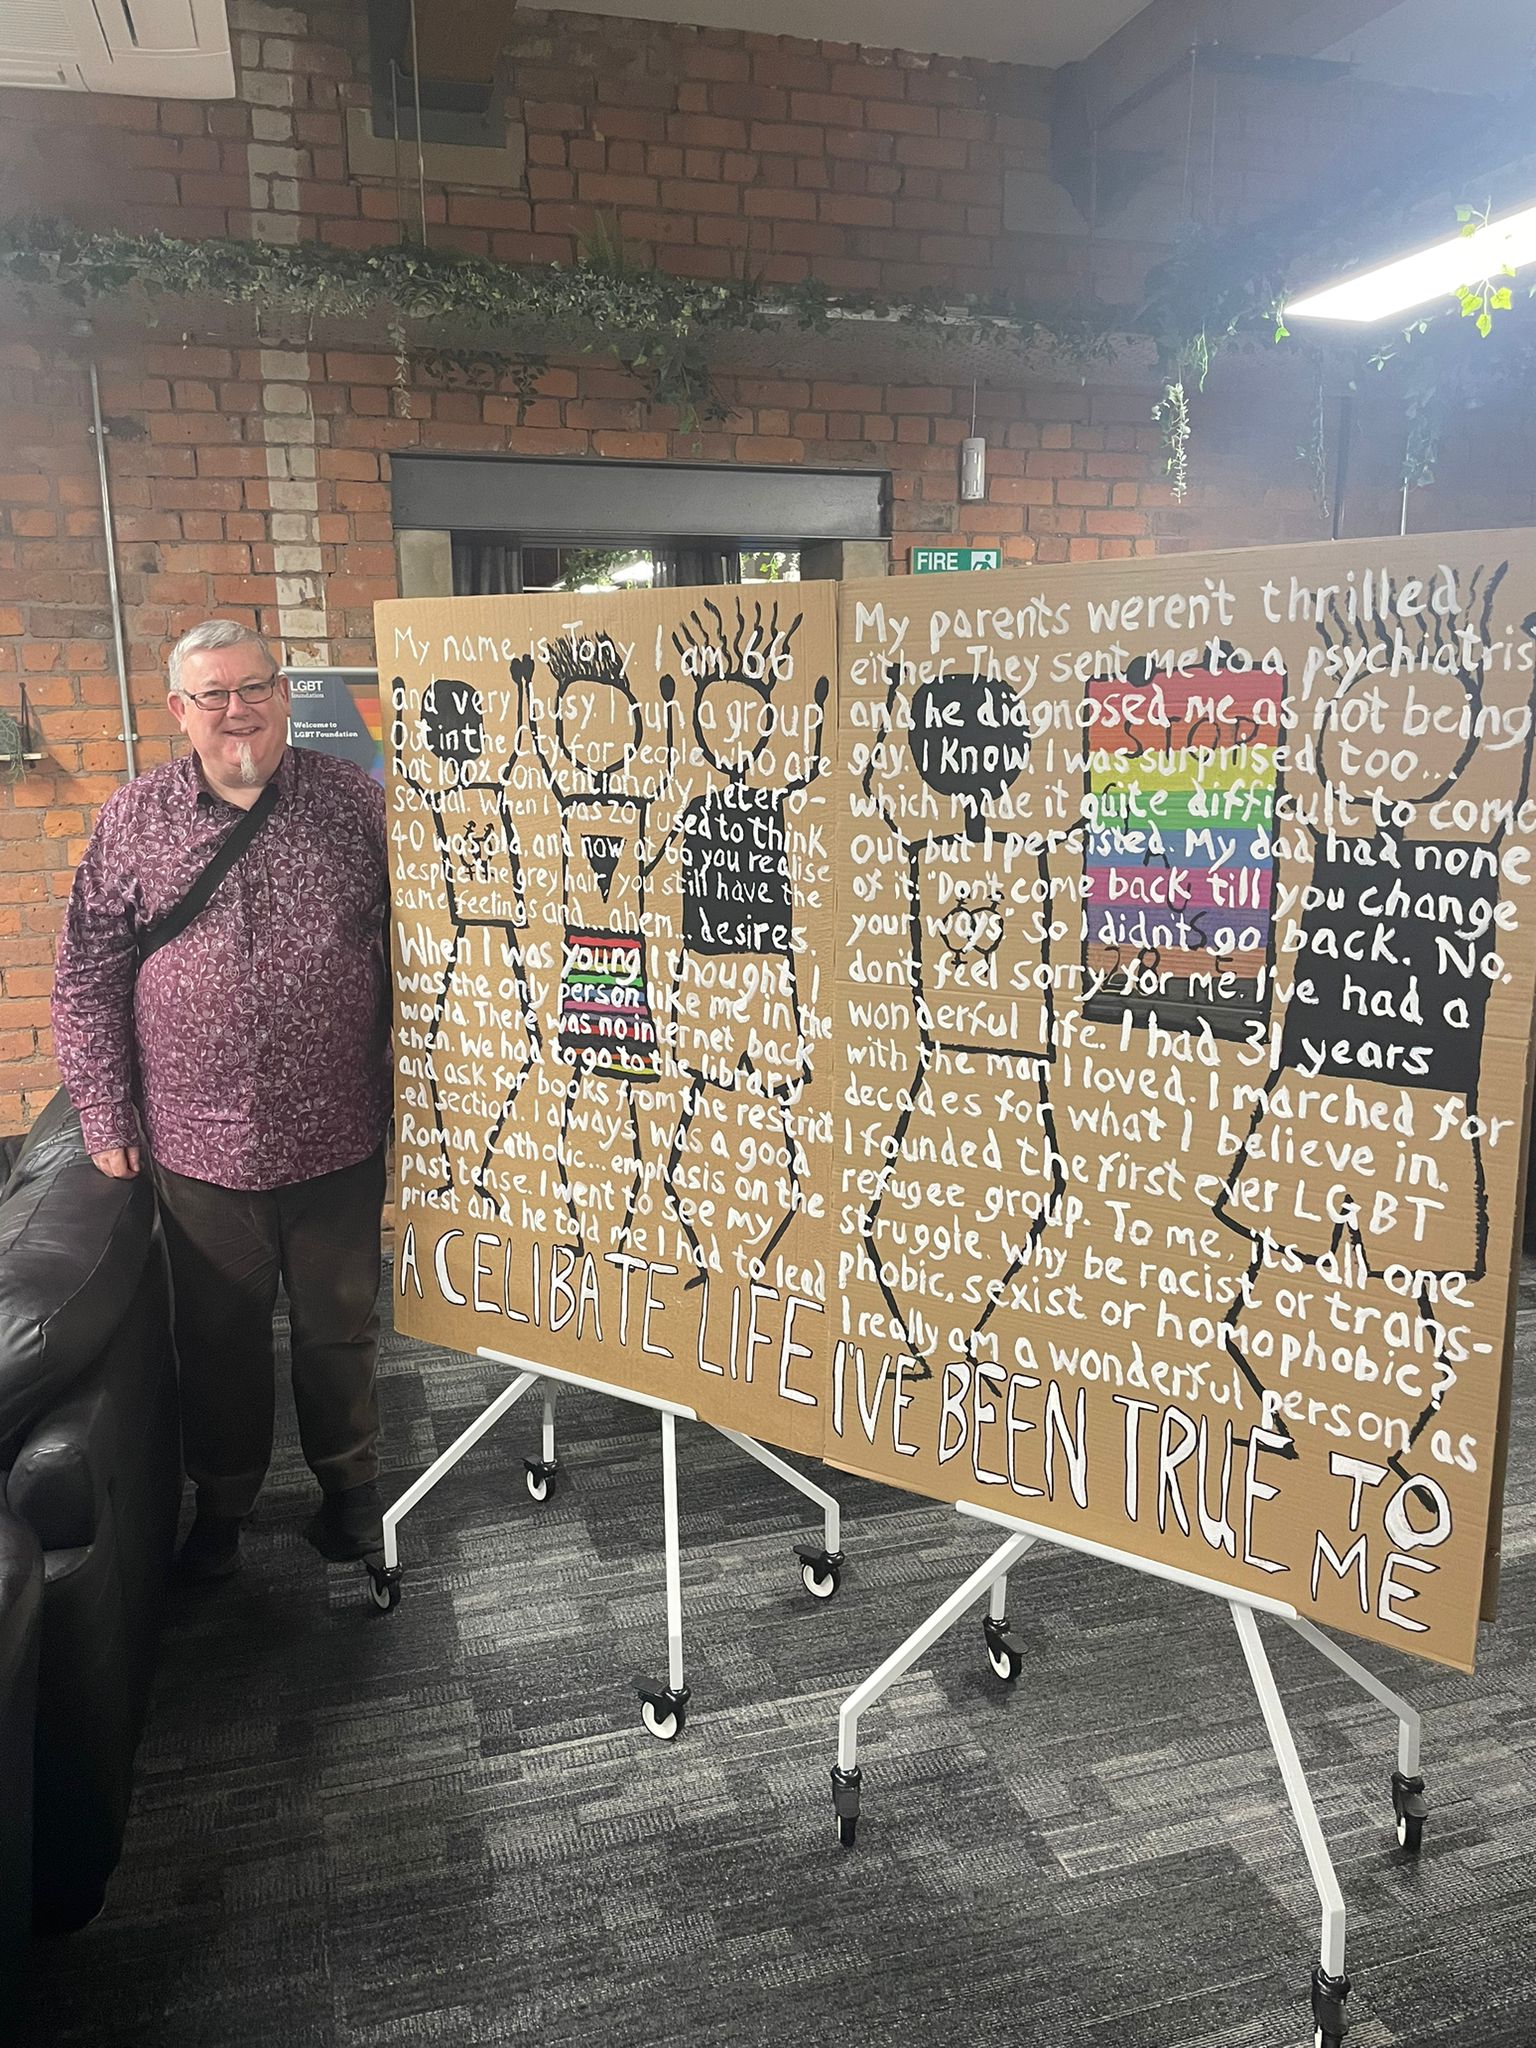 LGBT
foundation
Welcome to
LGBT Foundation
FIRE
My name is Tony. I am 66
and very busy. I run a group
Out in the City for people who are
not 100% conventionally hetero-
sexual. When I was 20 I used to think
40 was old, and now at 66 you realise
despite the grey hair, you still have the
same feelings and... ahem... desires.
When I was young I thought I
was the only person like me in the
world. There was no internet back
then. We had to go to the library
and ask for books from the restrict
-ed section. I always was a good
Roman Catholic... emphasis on the
past tense. I went to see my
priest and he told me I had to lead
A CELIBATE LIFE
My parents weren't thrilled
either. They sent me to a psychiatris
and he diagnosed me as not being
gay. I know, I was surprised too...
which made it quite difficult to come
out, but I persisted. My dad had none
of it: "Don't come back till you change
your ways." So I didn't go back. No,
don't feel sorry for me. I've had a
wonderful life. I had 31 years
with the man I loved. I marched for
decades for what I believe in.
I founded the first ever LGBT
refugee group. To me, its all one
struggle. Why be racist or trans-
phobic, sexist or homophobic?
I really am a wonderful person as
I'VE BEEN TRUE TO
ME
STOP
28